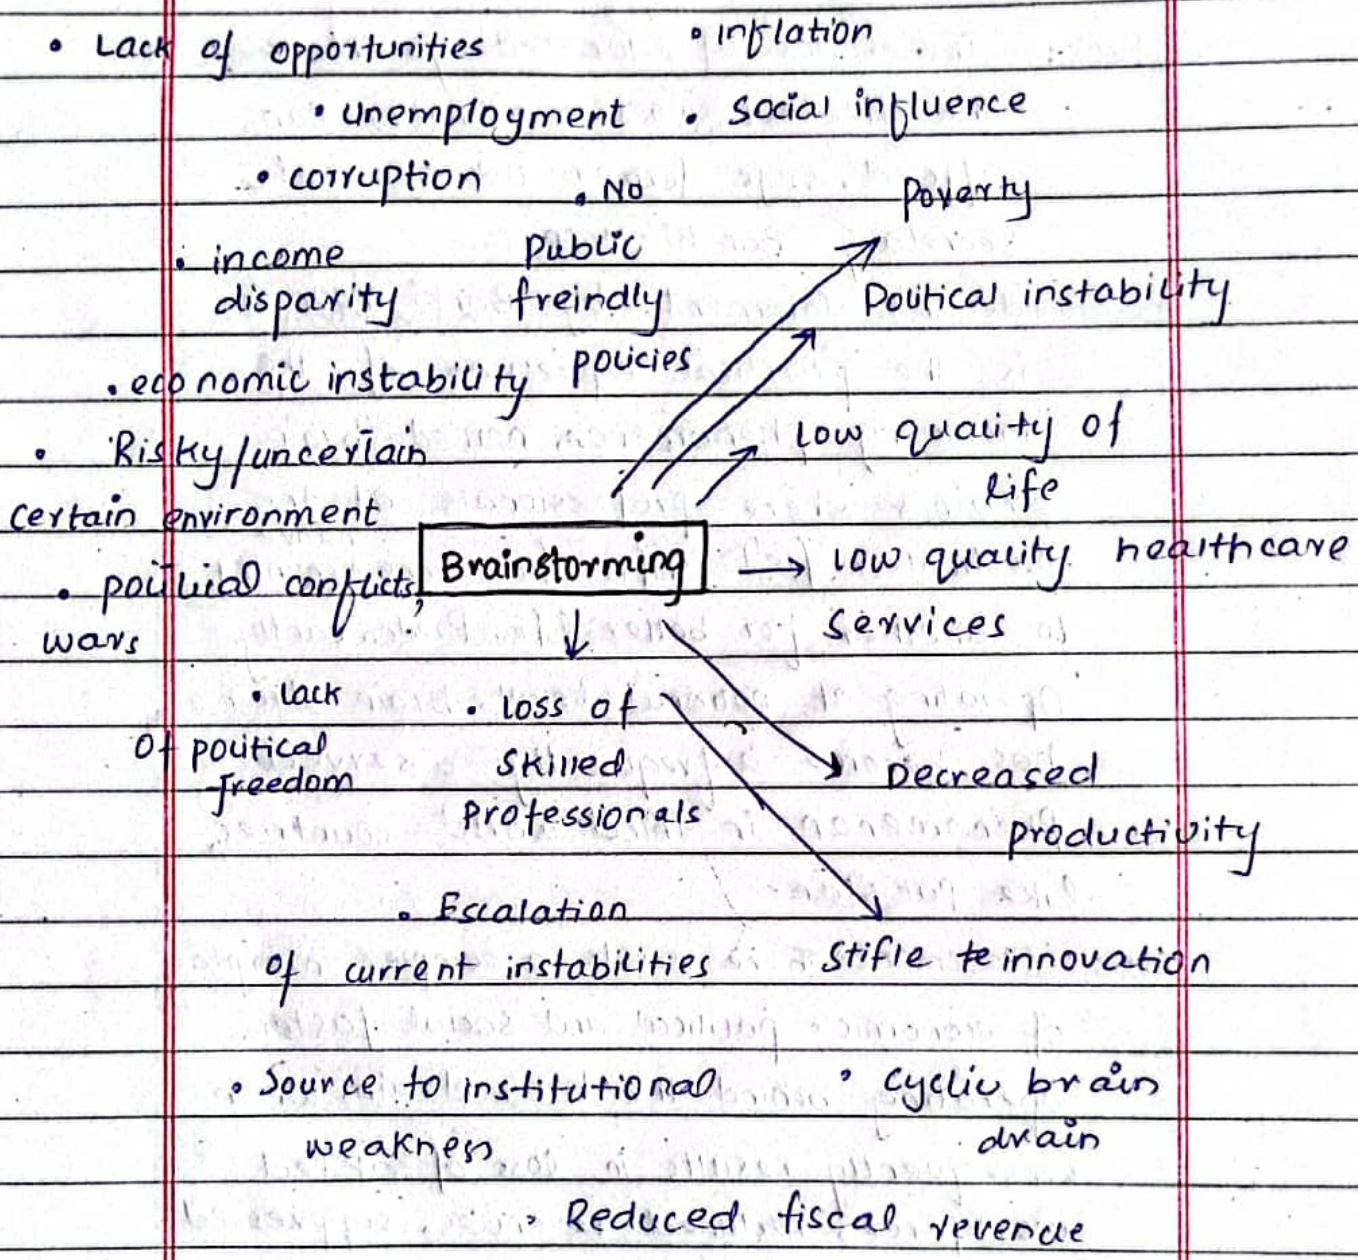 • Lack of opportunities
• inflation
• unemployment
• social influence
• corruption
• No
Public
freindly
policies
Poverty
• income
disparity
Political instability
• economic instability
• Risky/uncertain
certain environment
Low quality of
life
Brainstorming
→ low quality healthcare
services
• political conflicts,
wars
• lack
Of political
freedom
• loss of
skilled
Professionals
Decreased
productivity
• Escalation
of current instabilities
Stifle te innovation
• Source to institutional
weakness
• Cyclic brain
drain
• Reduced fiscal revenue